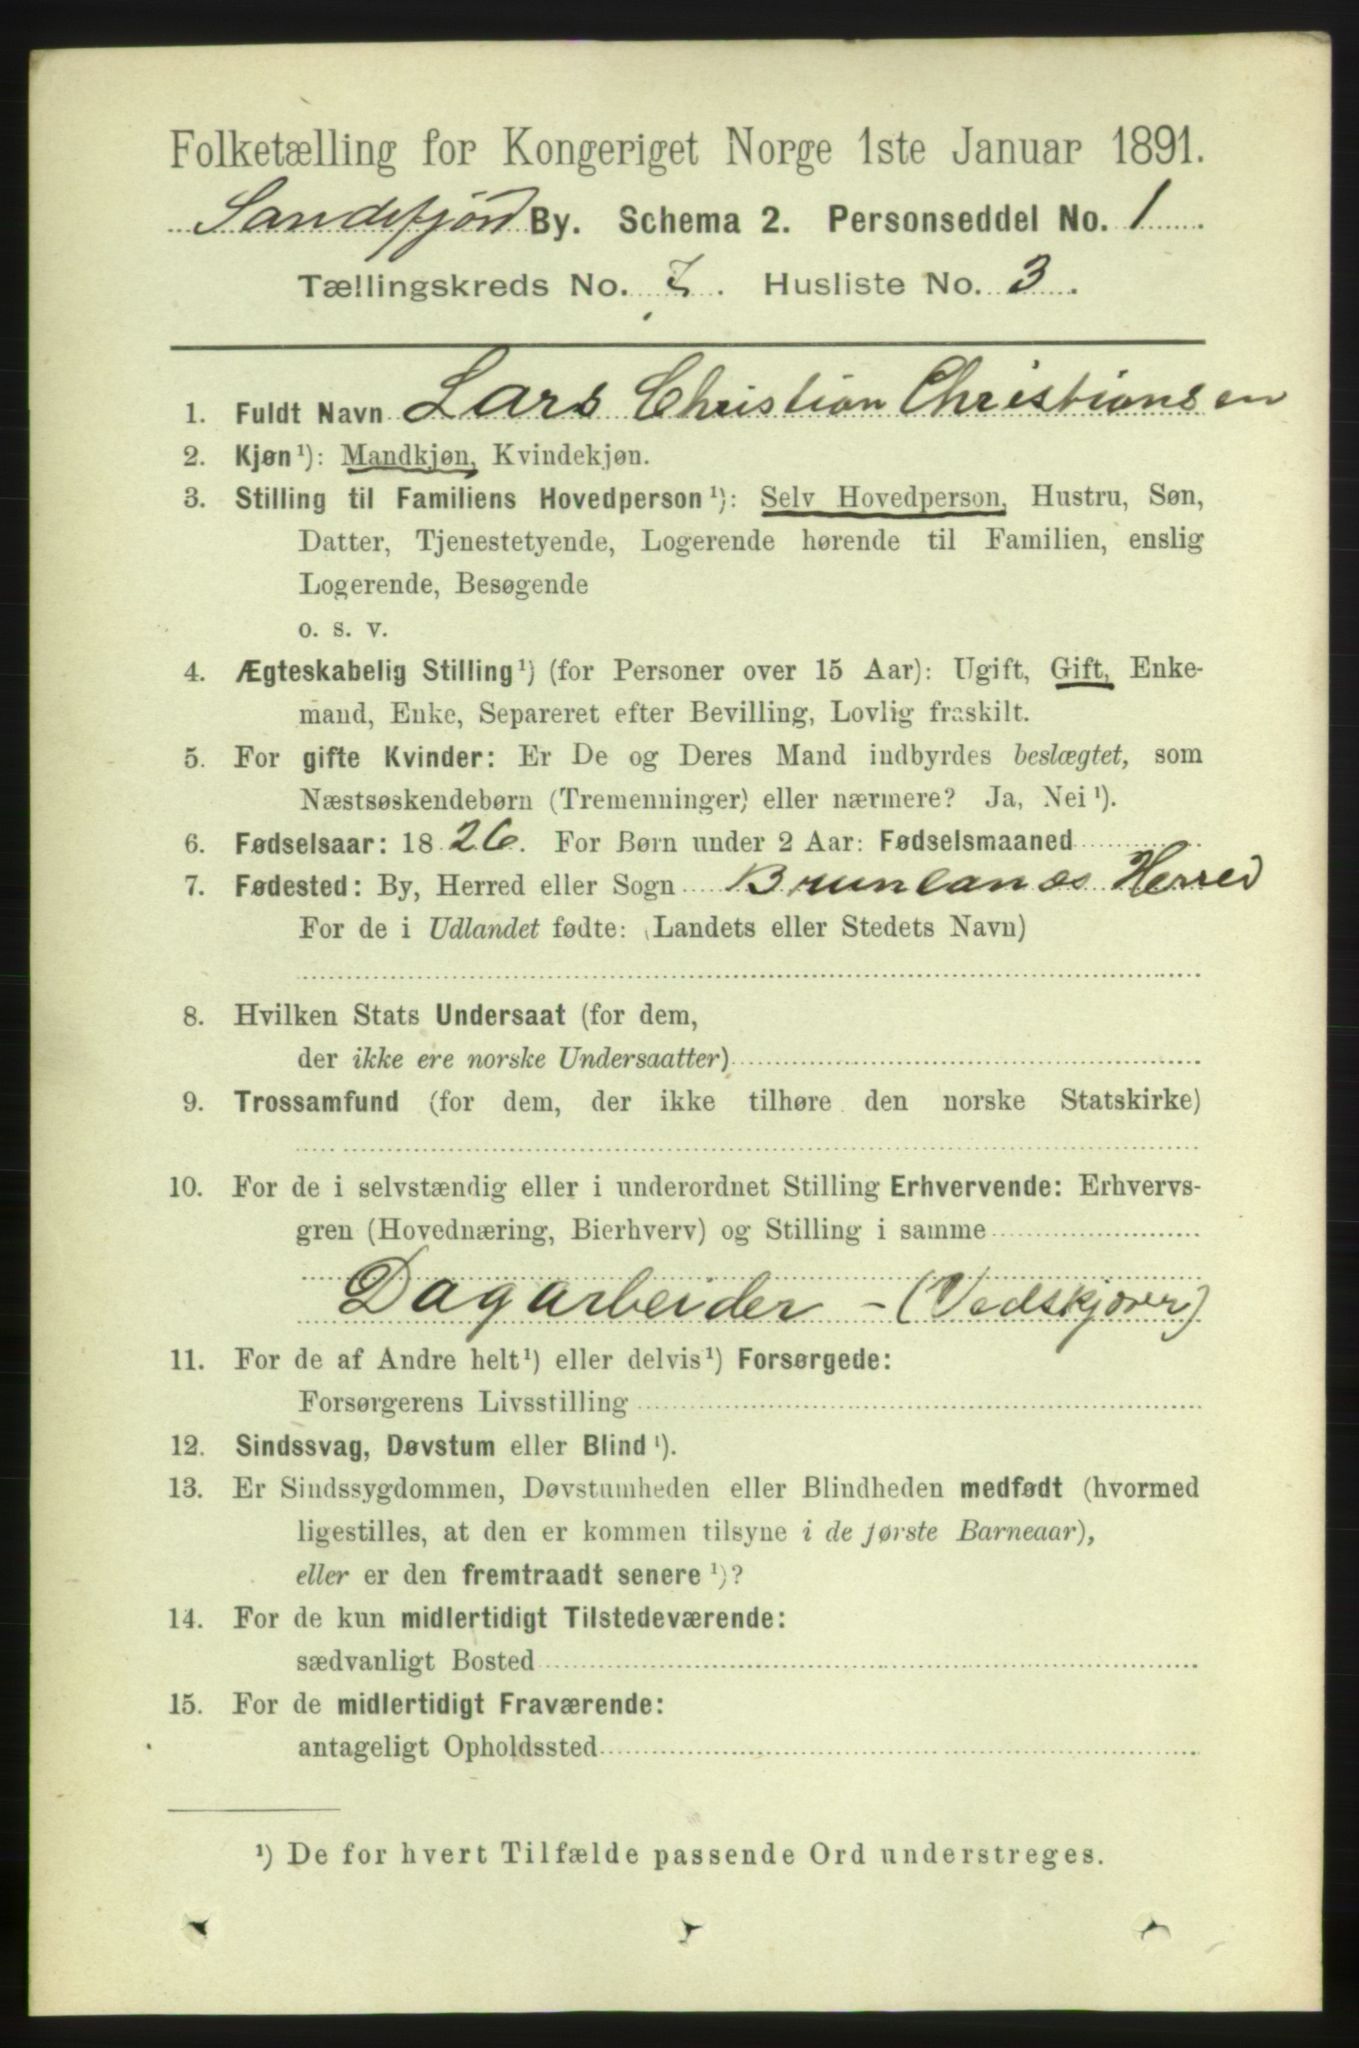 Folketælling for Kongeriget Norge 1ste Januar 1891.
Sandefjord By. Schema 2. Personseddel No. 1
Tællingskreds No. 7. Husliste No. 3.
1. Fuldt Navn Lars Christian Christiansen
2. Kjøn¹): Mandkjøn, Kvindekjøn.
3. Stilling til Familiens Hovedperson¹): Selv Hovedperson, Hustru, Søn,
Datter, Tjenestetyende, Logerende hørende til Familien, enslig
Logerende, Besøgende
o. s. v.
4. Ægteskabelig Stilling¹) (for Personer over 15 Aar): Ugift, Gift, Enke-
mand, Enke, Separeret efter Bevilling, Lovlig fraskilt.
5. For gifte Kvinder: Er De og Deres Mand indbyrdes beslægtet, som
Næstsøskendebørn (Tremenninger) eller nærmere? Ja, Nei¹).
6. Fødselsaar: 1826. For Børn under 2 Aar: Fødselsmaaned
7. Fødested: By, Herred eller Sogn Brunlanæs Herred
For de i Udlandet fødte: (Landets eller Stedets Navn)
8. Hvilken Stats Undersaat (for dem,
der ikke ere norske Undersaatter)
9. Trossamfund (for dem, der ikke tilhøre den norske Statskirke)
10. For de i selvstændig eller i underordnet Stilling Erhvervende: Erhvervs-
gren (Hovednæring, Bierhverv) og Stilling i samme
Dagarbeider - (Vedskjører)
11. For de af Andre helt¹) eller delvis¹) Forsørgede:
Forsørgerens Livsstilling
12. Sindssvag, Døvstum eller Blind¹).
13. Er Sindssygdommen, Døvstumheden eller Blindheden medfødt (hvormed
ligestilles, at den er kommen tilsyne i de første Barneaar),
eller er den fremtraadt senere¹)?
14. For de kun midlertidigt Tilstedeværende:
sædvanligt Bosted
15. For de midlertidigt Fraværende:
antageligt Opholdssted
¹) De for hvert Tilfælde passende Ord understreges.